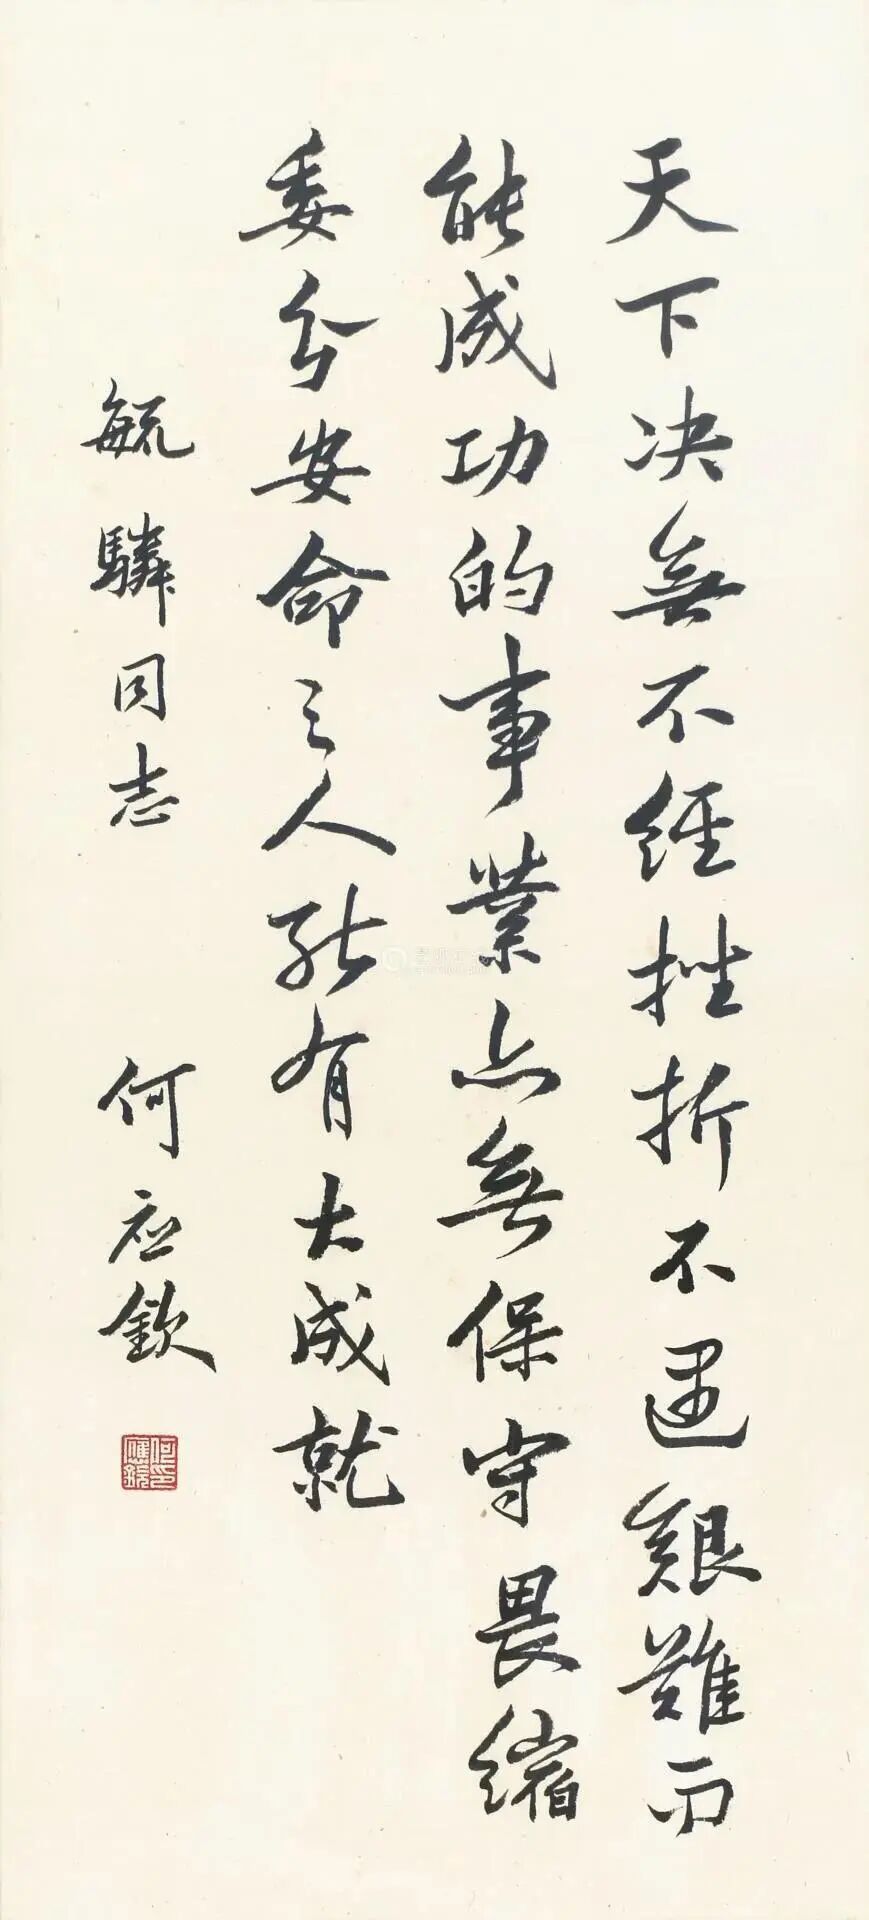 天下決無不經挫折不遇艱難而
能成功的事業亦無保守畏縮
委分安命之人能有大成就
毓驎同志
何应欽
何應欽印